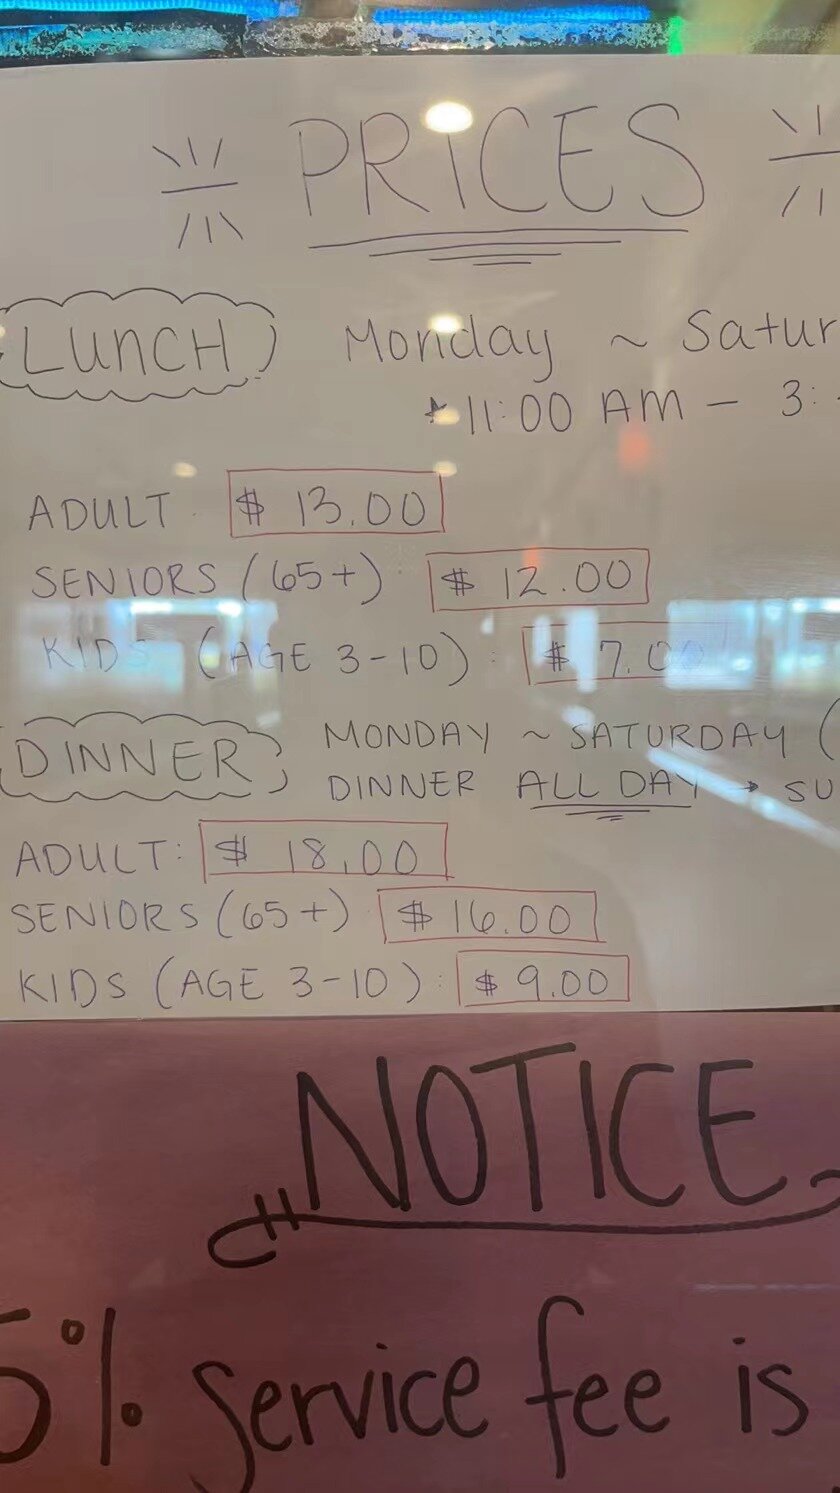 PRICES
LUNCH Monday ~ Satur
*11:00 AM - 3:
ADULT $ 13.00
SENIORS (65+) $ 12.00
KIDS (AGE 3-10): $ 7.00
DINNER MONDAY ~ SATURDAY (
DINNER ALL DAY → SU
ADULT: $ 18.00
SENIORS (65+) $ 16.00
KIDS (AGE 3-10): $ 9.00
NOTICE
5% service fee is